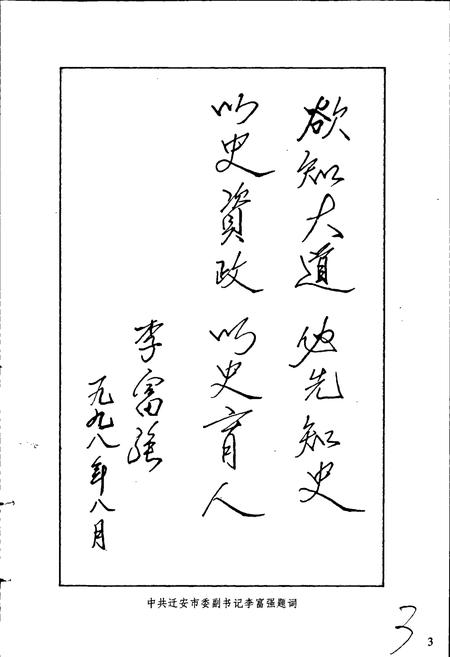 欲知大道 必先知史
以史資政 以史育人
李富强
一九九八年八月
中共迁安市委副书记李富强题词
3
3